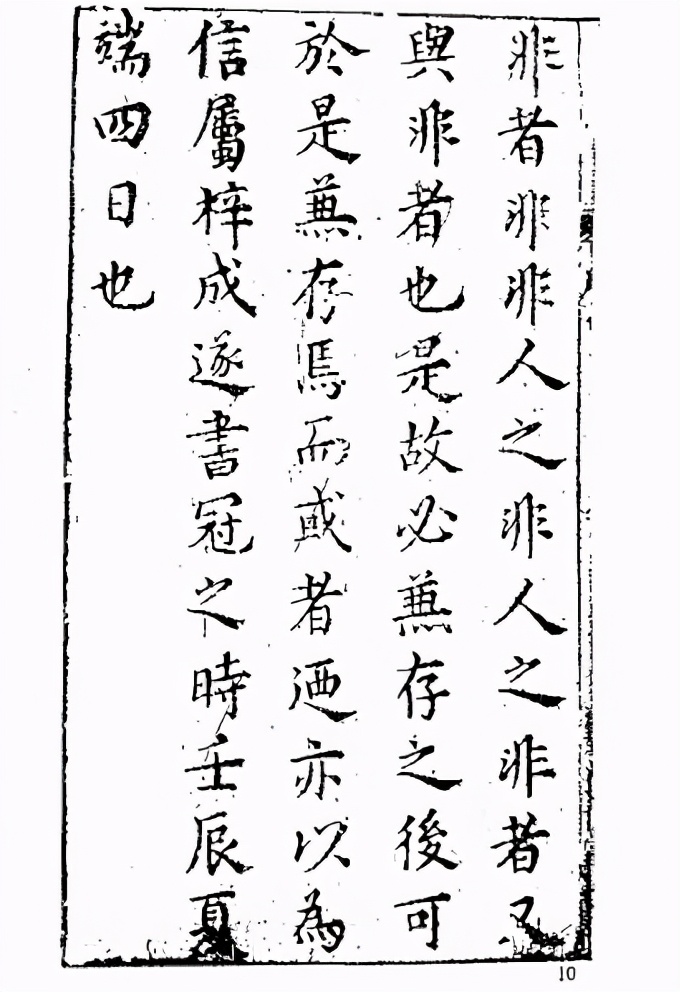 非者非非人之非人之非者
與非者也是故必兼存之後可
於是兼存焉而或者迺亦以為
信屬梓成遂書冠之時壬辰夏
端四日也
10